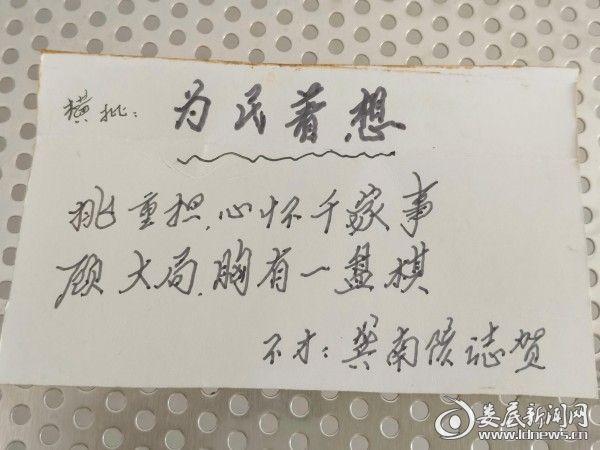 横批：为民着想
挑重担，心怀千家事
顾大局，胸有一盘棋
不才：龚南陔誌贺
娄底新闻网
www.ldnews.cn